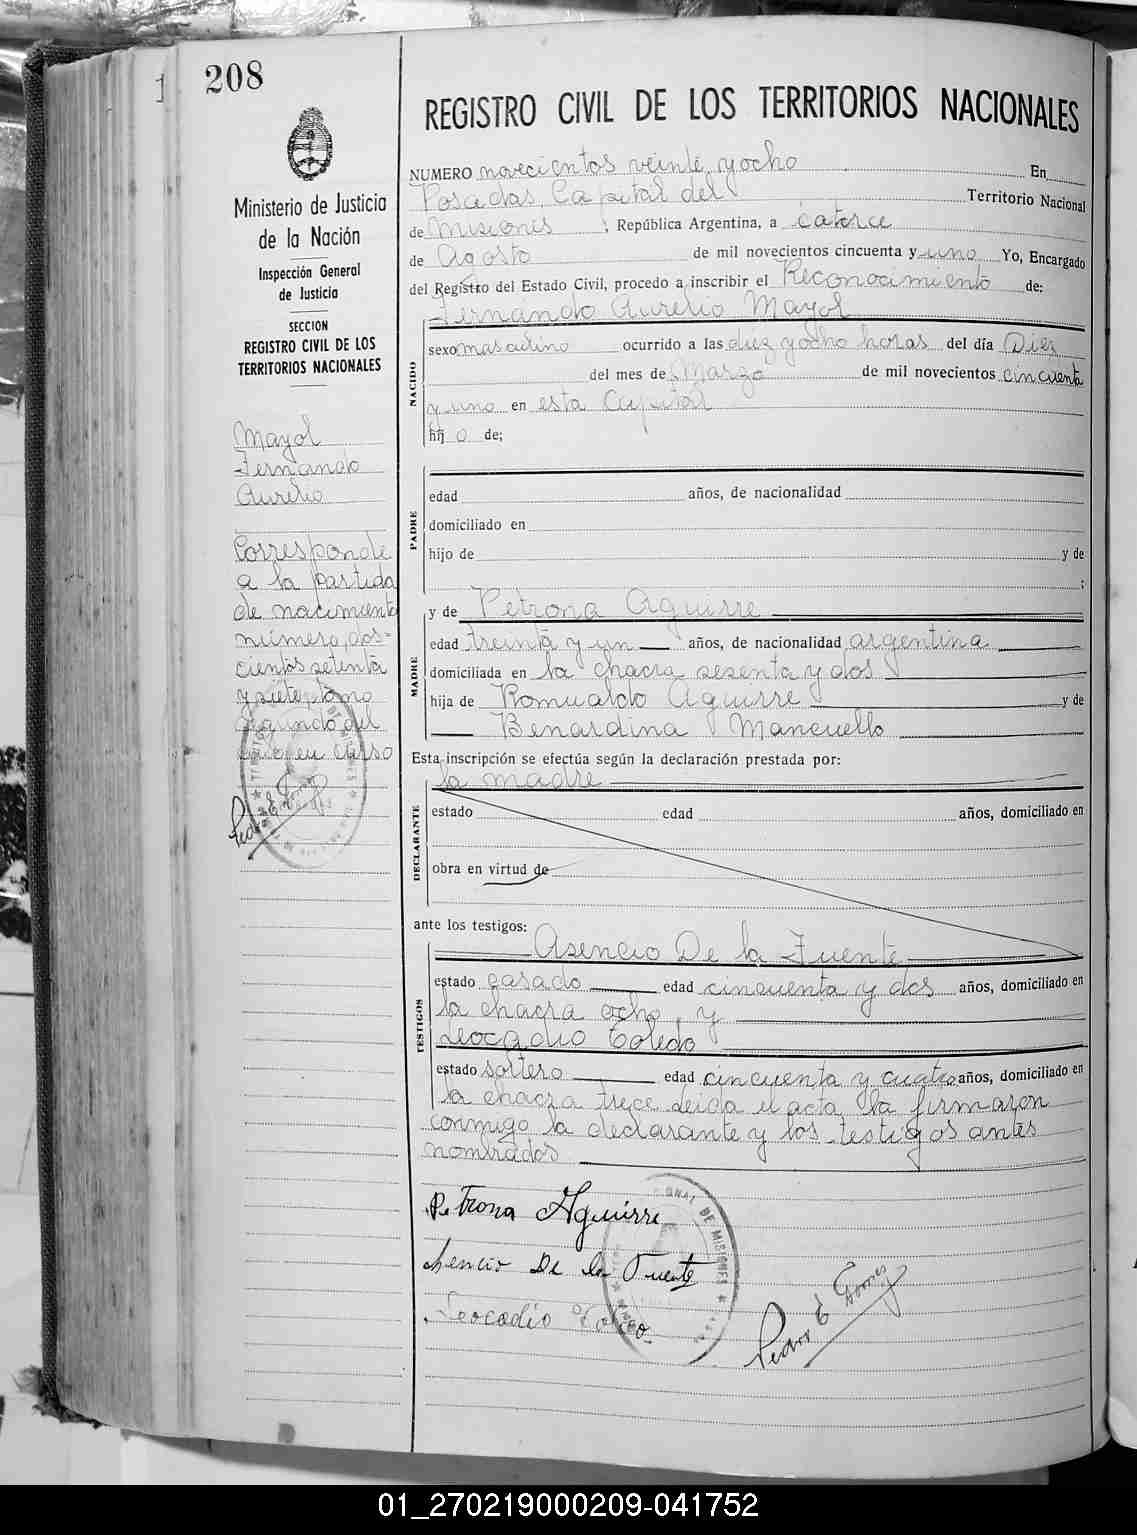 208
Ministerio de Justicia
de la Nación
Inspección General
de Justicia
SECCION
REGISTRO CIVIL DE LOS
TERRITORIOS NACIONALES
Mayol
Fernando
Aurelio
Corresponde
a la partida
de nacimiento
número, dos-
cientos setenta
y siete, tomo
segundo del
año en curso
REGISTRO CIVIL DE LOS TERRITORIOS NACIONALES
NUMERO novecientos veinte y ocho En
Posadas, Capital del Territorio Nacional
de Misiones ; República Argentina, a catorce
de Agosto de mil novecientos cincuenta y uno Yo, Encargado
del Registro del Estado Civil, procedo a inscribir el Reconocimiento de:
Fernando Aurelio Mayol
NACIDO
sexo masculino ocurrido a las diez y ocho horas del día Diez
del mes de Marzo de mil novecientos cincuenta
y uno en esta Capital
hij o de;
PADRE
edad años, de nacionalidad
domiciliado en
hijo de y de
;
MADRE
y de Petrona Aguirre
edad treinta y un años, de nacionalidad argentina
domiciliada en la chacra sesenta y dos
hija de Romualdo Aguirre y de
Benardina Mancuello
Esta inscripción se efectúa según la declaración prestada por:
la madre
DECLARANTE
estado edad años, domiciliado en
obra en virtud de
ante los testigos:
Asencio De la Fuente
TESTIGOS
estado casado edad cincuenta y dos años, domiciliado en
la chacra ocho, y
Leocadio Toledo
estado soltero edad cincuenta y cuatro años, domiciliado en
la chacra trece Leida el acta, la firmaron
conmigo la declarante y los testigos antes
nombrados
Petrona Aguirre
Asencio De la Fuente
Leocadio Toledo
Pedro E
DE MISIONES
01_270219000209-041752